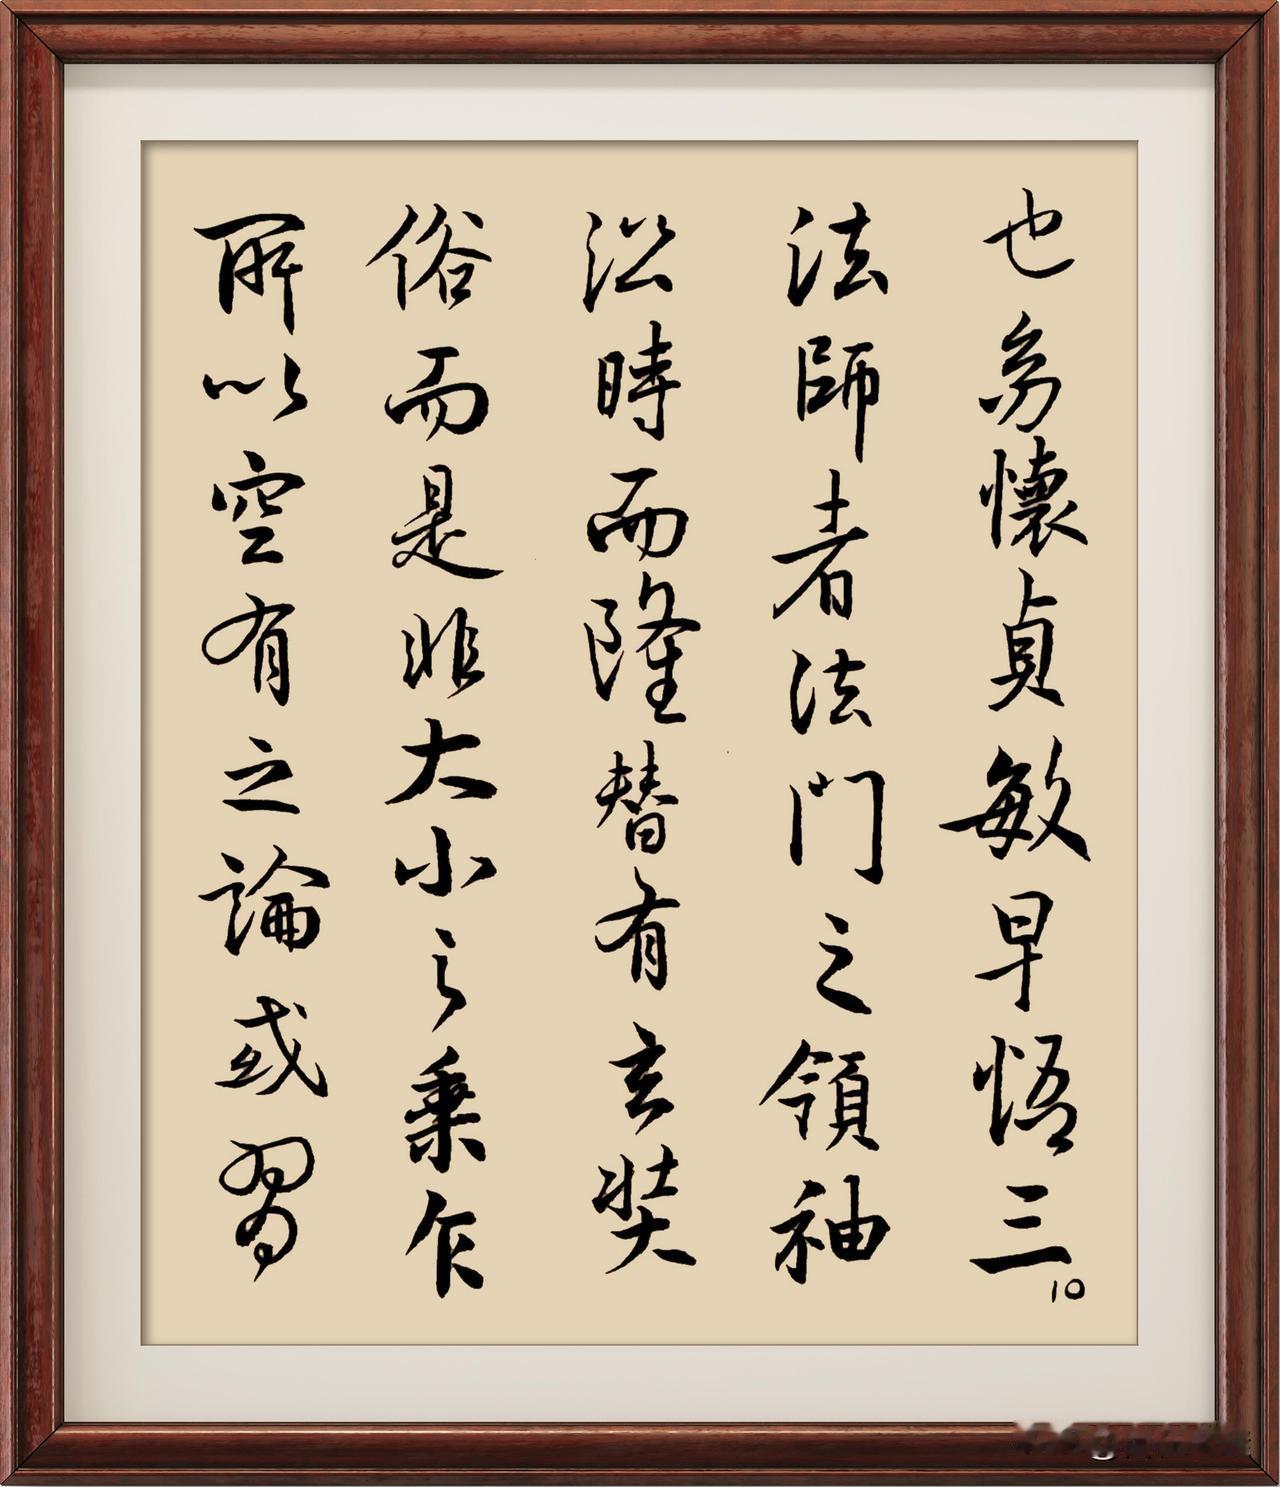 所以空有之論或習
俗而是非大小之乘乍
沿時而隆替有玄奘
法師者法門之領袖
也幼懷貞敏早悟三
10